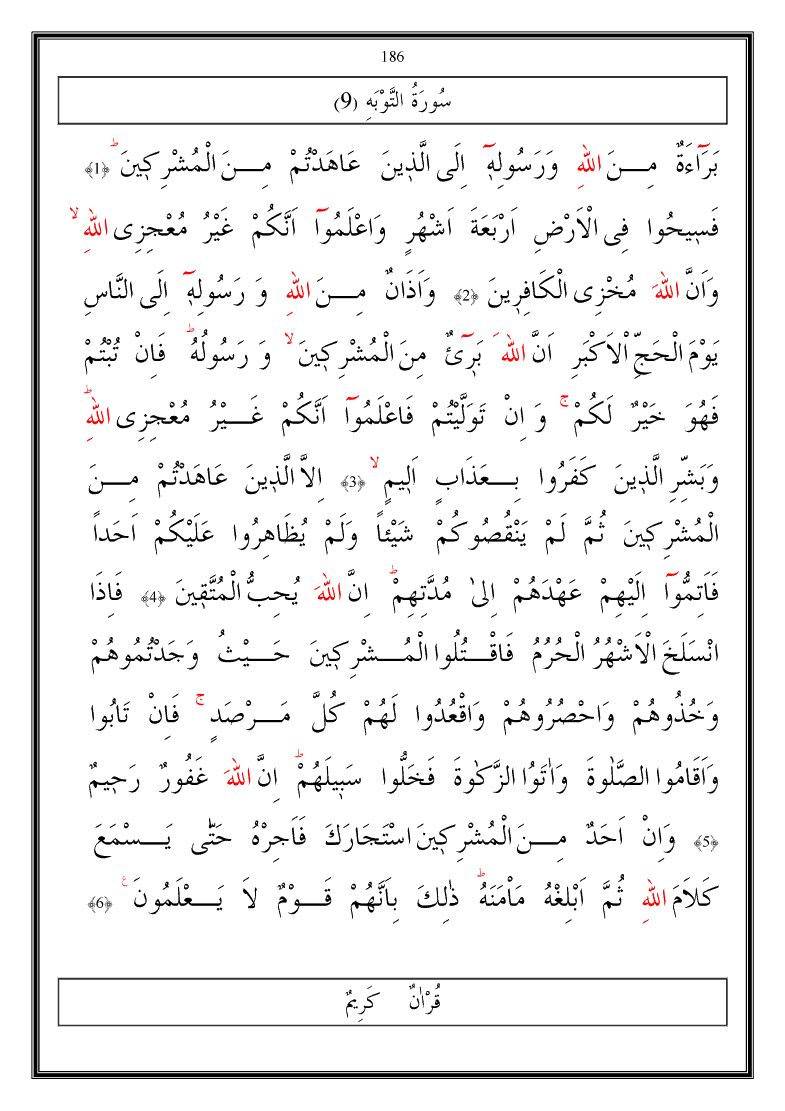 186
سُورَةُ التَّوْبَهِ (9)
بَرَٓاءَةٌ مِـــنَ اللّٰهِ وَرَسُولِهٖٓ اِلَى الَّذٖينَ عَاهَدْتُمْ مِـــنَ الْمُشْرِكٖينَ ؕ ﴿1﴾
فَسٖيحُوا فِى الْاَرْضِ اَرْبَعَةَ اَشْهُرٍ وَاعْلَمُوٓا اَنَّكُمْ غَيْرُ مُعْجِزِى اللّٰهِ ۙ
وَاَنَّ اللّٰهَ مُخْزِى الْكَافِرٖينَ ﴿2﴾ وَاَذَانٌ مِـــنَ اللّٰهِ وَ رَسُولِهٖٓ اِلَى النَّاسِ
يَوْمَ الْحَجِّ الْاَكْبَرِ اَنَّ اللّٰهَ بَرٖٓئٌ مِنَ الْمُشْرِكٖينَ ۙ وَ رَسُولُهُ ؕ فَاِنْ تُبْتُمْ
فَهُوَ خَيْرٌ لَكُمْ ۚ وَ اِنْ تَوَلَّيْتُمْ فَاعْلَمُوٓا اَنَّكُمْ غَـــيْرُ مُعْجِزِى اللّٰهِ ؕ
وَبَشِّرِ الَّذٖينَ كَفَرُوا بِـــعَذَابٍ اَلٖيمٍ ۙ ﴿3﴾ اِلاَّ الَّذٖينَ عَاهَدْتُمْ مِـــنَ
الْمُشْرِكٖينَ ثُمَّ لَمْ يَنْقُصُوكُمْ شَيْئاً وَلَمْ يُظَاهِرُوا عَلَيْكُمْ اَحَداً
فَاَتِمُّوٓا اِلَيْهِمْ عَهْدَهُمْ اِلىٰ مُدَّتِهِمْ ؕ اِنَّ اللّٰهَ يُحِبُّ الْمُتَّقٖينَ ﴿4﴾ فَاِذَا
انْسَلَخَ الْاَشْهُرُ الْحُرُمُ فَاقْـــتُلُوا الْمُـــشْرِكٖينَ حَـــيْثُ وَجَدْتُمُوهُمْ
وَخُذُوهُمْ وَاحْصُرُوهُمْ وَاقْعُدُوا لَهُمْ كُلَّ مَـــرْصَدٍ ۚ فَاِنْ تَابُوا
وَاَقَامُوا الصَّلٰوةَ وَاٰتَوُا الزَّكٰوةَ فَخَلُّوا سَبٖيلَهُمْ ؕ اِنَّ اللّٰهَ غَفُورٌ رَحٖيمٌ
﴿5﴾ وَاِنْ اَحَدٌ مِـــنَ الْمُشْرِكٖينَ اسْتَجَارَكَ فَاَجِرْهُ حَتّٰى يَـــسْمَعَ
كَلَامَ اللّٰهِ ثُمَّ اَبْلِغْهُ مَاْمَنَهُ ؕ ذٰلِكَ بِاَنَّهُمْ قَـــوْمٌ لاَ يَـــعْلَمُونَ ۧ ﴿6﴾
قُرْاٰنٌ كَرٖيمٌ